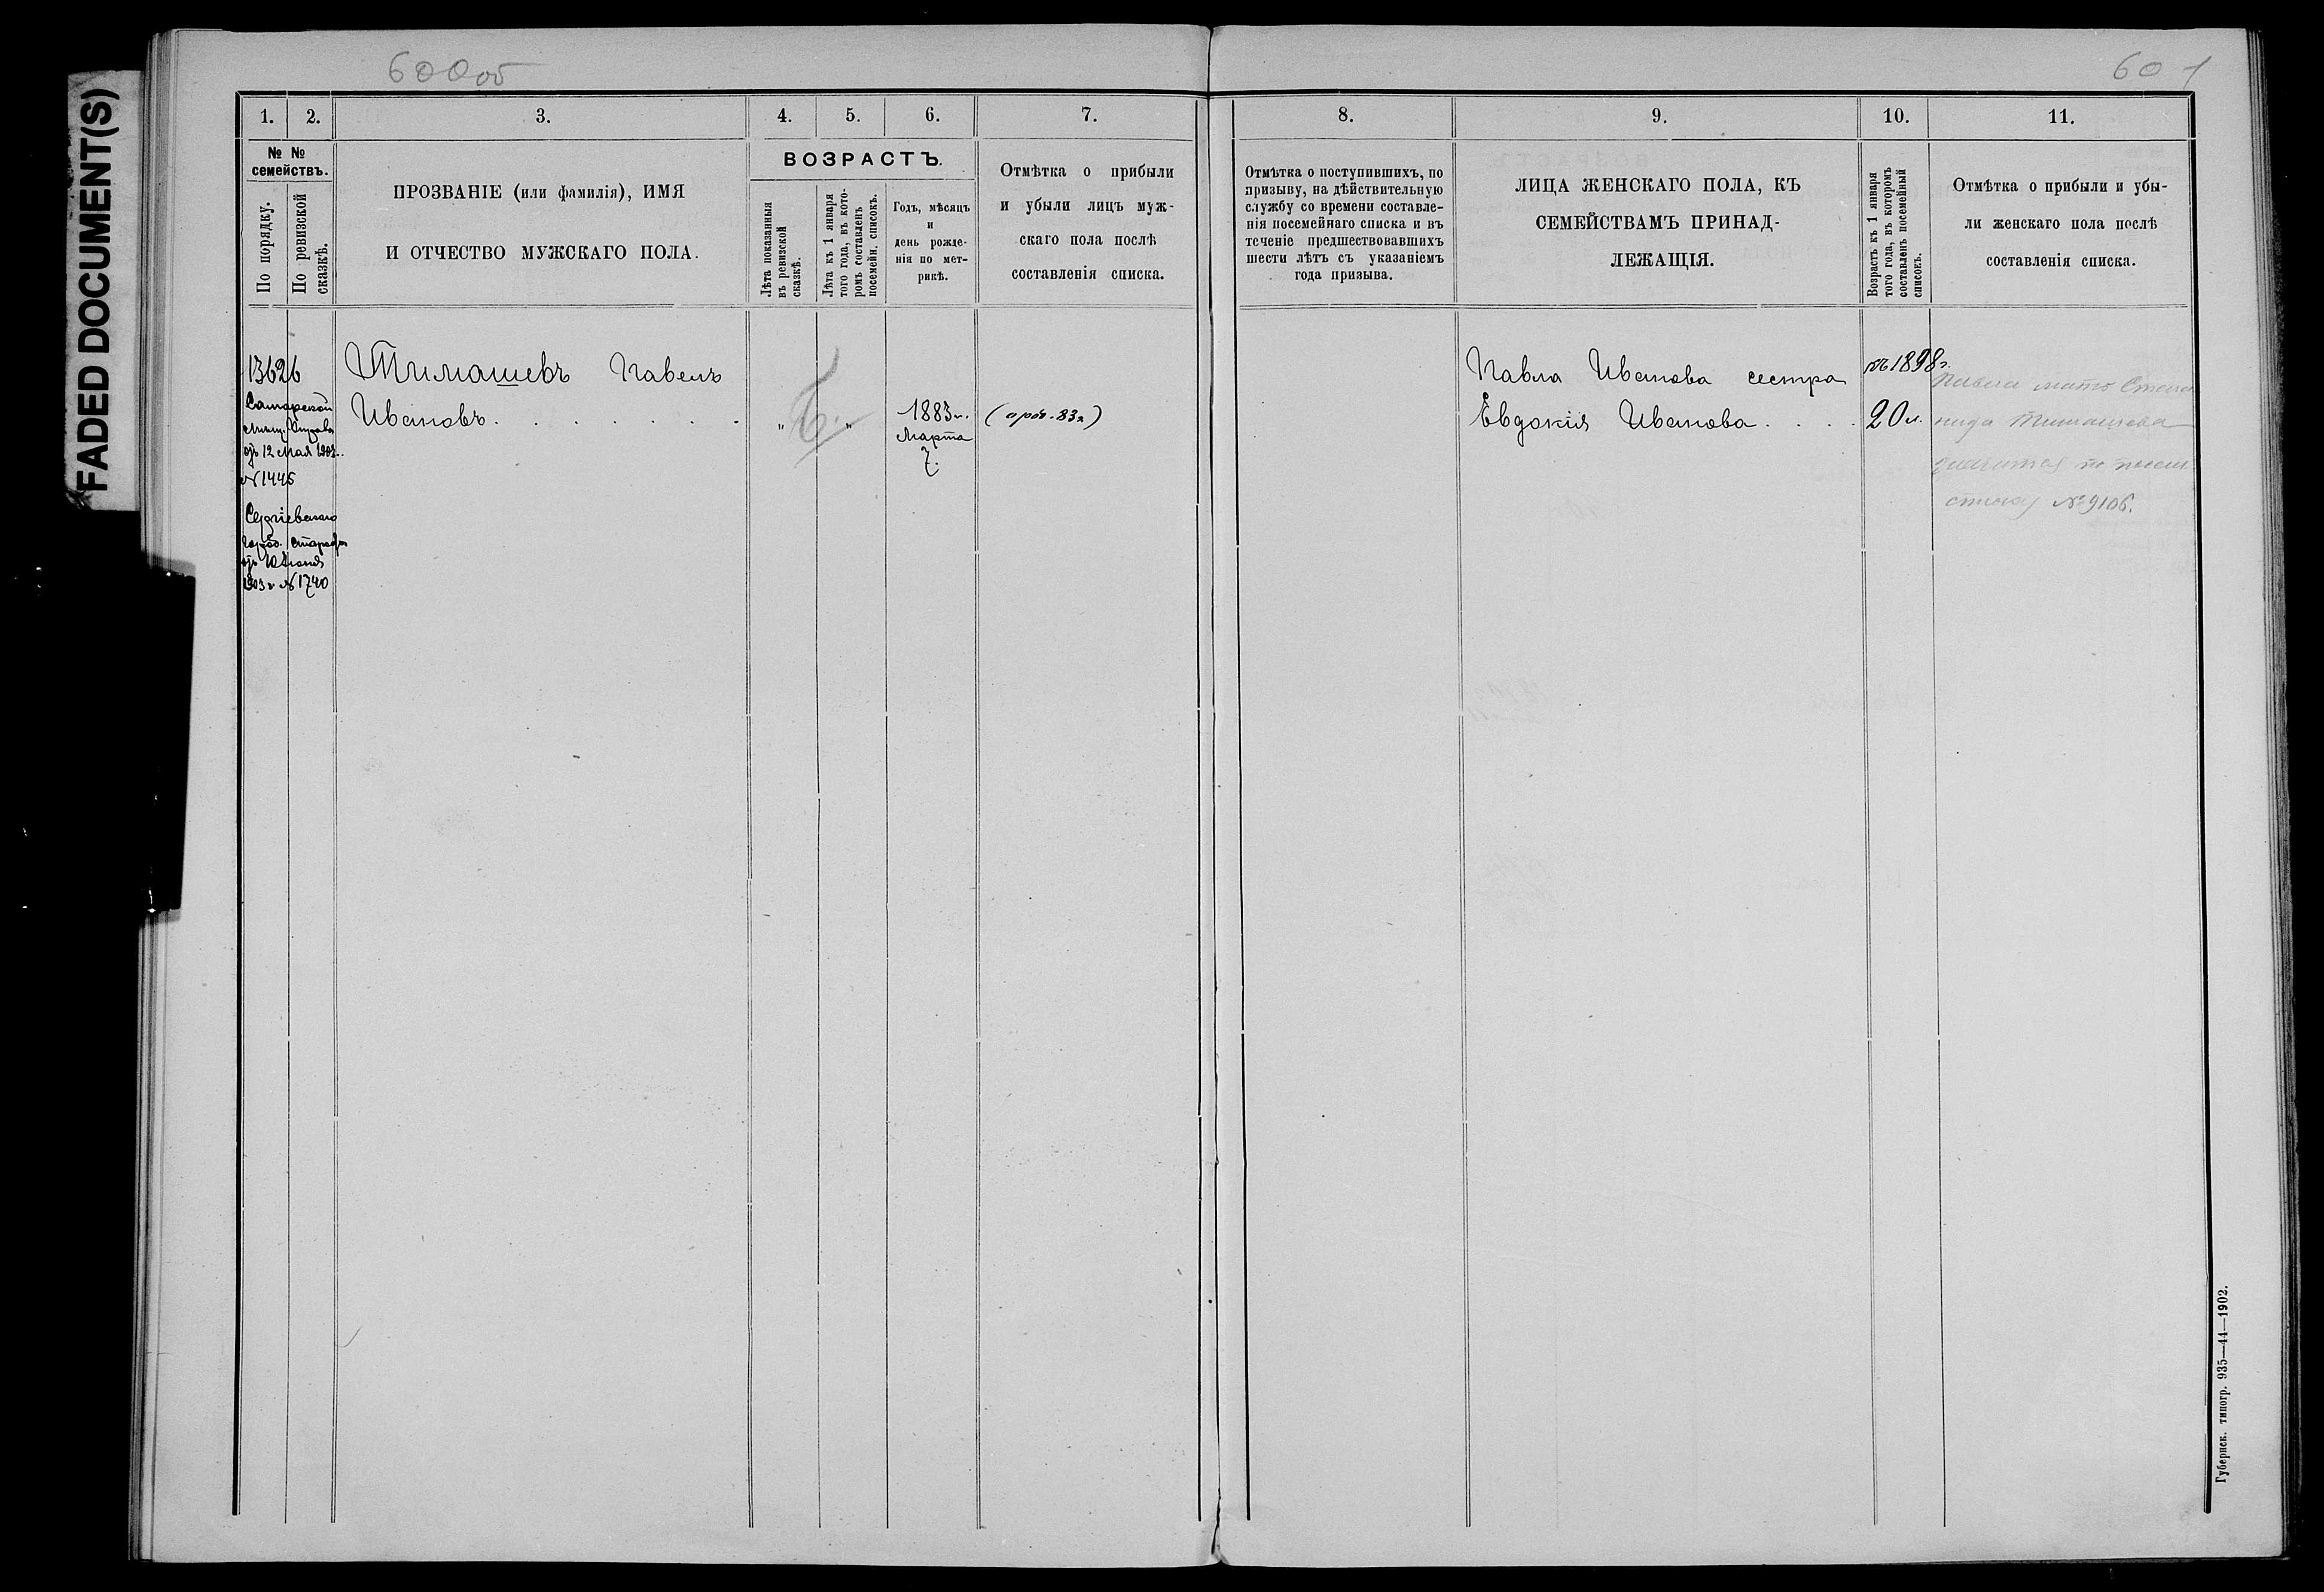 FADED DOCUMENT(S)
600об
1. 2. 3. 4. 5. 6. 7.
№ № семействъ.
По порядку.
По ревизской сказкѣ.
ПРОЗВАНІЕ (или фамилія), ИМЯ
И ОТЧЕСТВО МУЖСКАГО ПОЛА.
ВОЗРАСТЪ.
Лѣта показанныя
въ ревизской
сказкѣ.
Лѣта къ 1 января
того года, въ кото-
ромъ составленъ
посемейн. списокъ.
Годъ, мѣсяцъ
и
день рожде-
нія по мет-
рикѣ.
Отмѣтка о прибыли
и убыли лицъ муж-
скаго пола послѣ
составленія списка.
13626
Самарской
мѣщ. Управы
отъ 12 мая 1903
№ 1445
Сергіевскаго
город. старосты
отъ 10 Іюня
1903 г. № 1740
Тимашевъ Павелъ
Ивановъ
" "
1883 г.
Марта
7.
601
8. 9. 10. 11.
Отмѣтка о поступившихъ, по
призыву, на дѣйствительную
службу со времени составле-
нія посемейнаго списка и въ
теченіе предшествовавшихъ
шести лѣтъ съ указаніемъ
года призыва.
ЛИЦА ЖЕНСКАГО ПОЛА, КЪ
СЕМЕЙСТВАМЪ ПРИНАД-
ЛЕЖАЩІЯ.
Возрастъ къ 1 января
того года, въ которомъ
составленъ посемейный
списокъ.
Отмѣтка о прибыли и убы-
ли женскаго пола послѣ
составленія списка.
Павла Иванова сестра
Евдокія Иванова
къ 1898 г.
20 л.
Павла мать Степа
нида Тимашева
значится по посем.
списку № 9106.
Губернск. типогр. 935—44—1902.